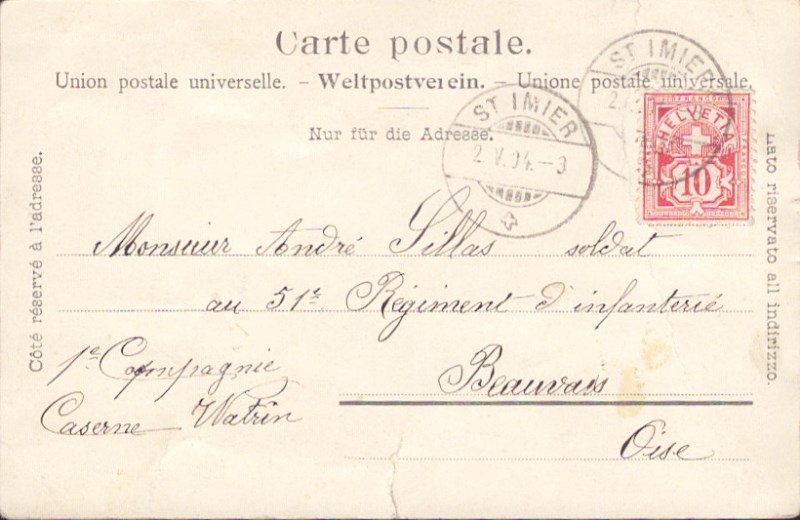 Carte postale.
Union postale universelle. – Weltpostverein. – Unione postale universale.
Nur für die Adresse.
Côté réservé à l'adresse.
Lato riservato all indirizzo.
ST IMIER
2.V.04.-3
ST IMIER
FRANCO
HELVETIA
10
Monsieur André Sillas soldat
au 51e Régiment d'infanterie
1e Compagnie
Beauvais
Caserne Watrin
Oise